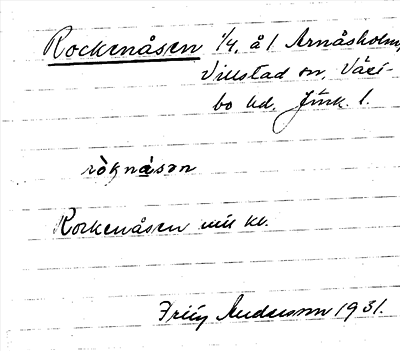 Rockenåsen 1/4, å l Arnåsholm,
Villstad sn, Väst-
bo hd, Jönk. l.
ròknásən
Rockenåsen
Andersson 1931.